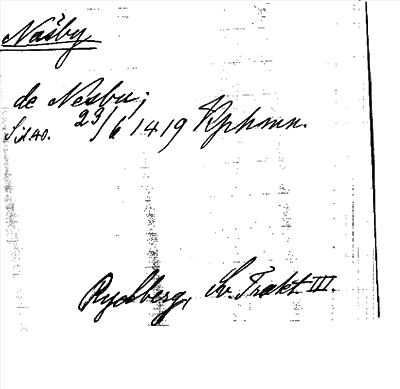 Näsby
de Nesby;
Sid 40. 23/6 1419 Kphmn.
Rydberg, Sv. Trakt. III.